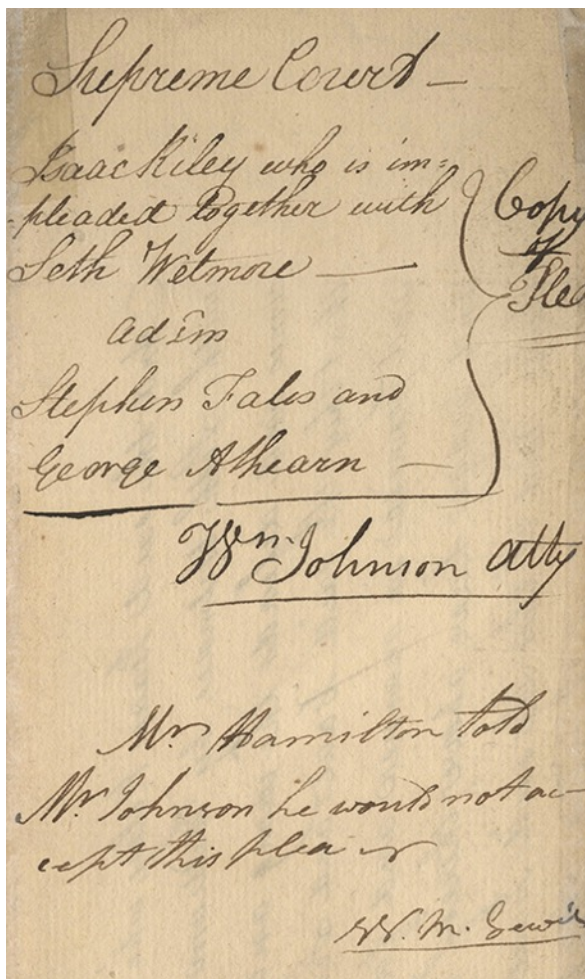 Supreme Court —
Isaac Riley who is im=
-pleaded together with
Seth Wetmore —
ads
Stephen Fales and
George Athearn —
Copy
of
Wm. Johnson Atty
Mr. Hamilton told
Mr. Johnson he would not ac-
cept this plea
W. M.